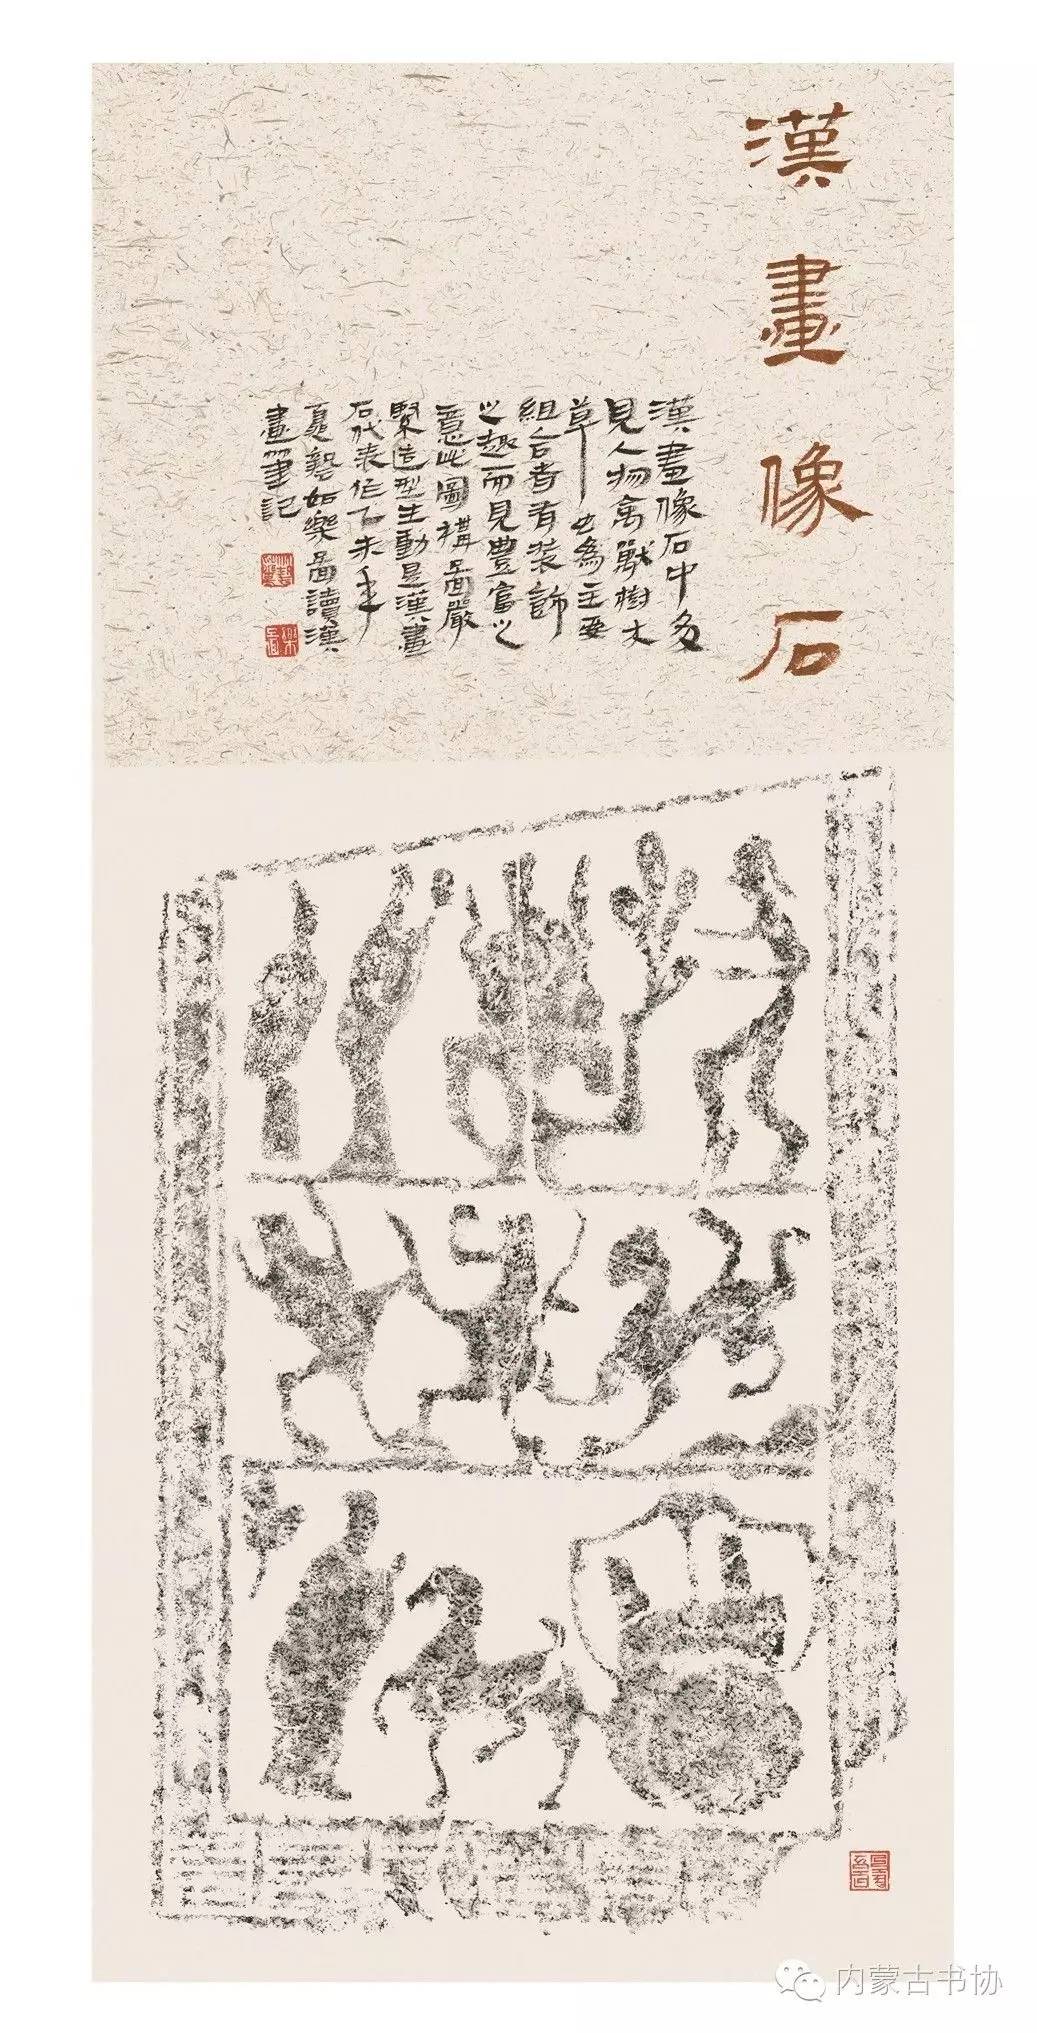 漢畫像石
漢畫像石中多
見人物禽獸樹木
草
也為主要
組合者有裝飾
之趣而見豐富之
意此圖構圖嚴
緊造型生動是漢畫
石代表作乙未年
夏毅如樂畵讀漢
畫筆記
内蒙古书协